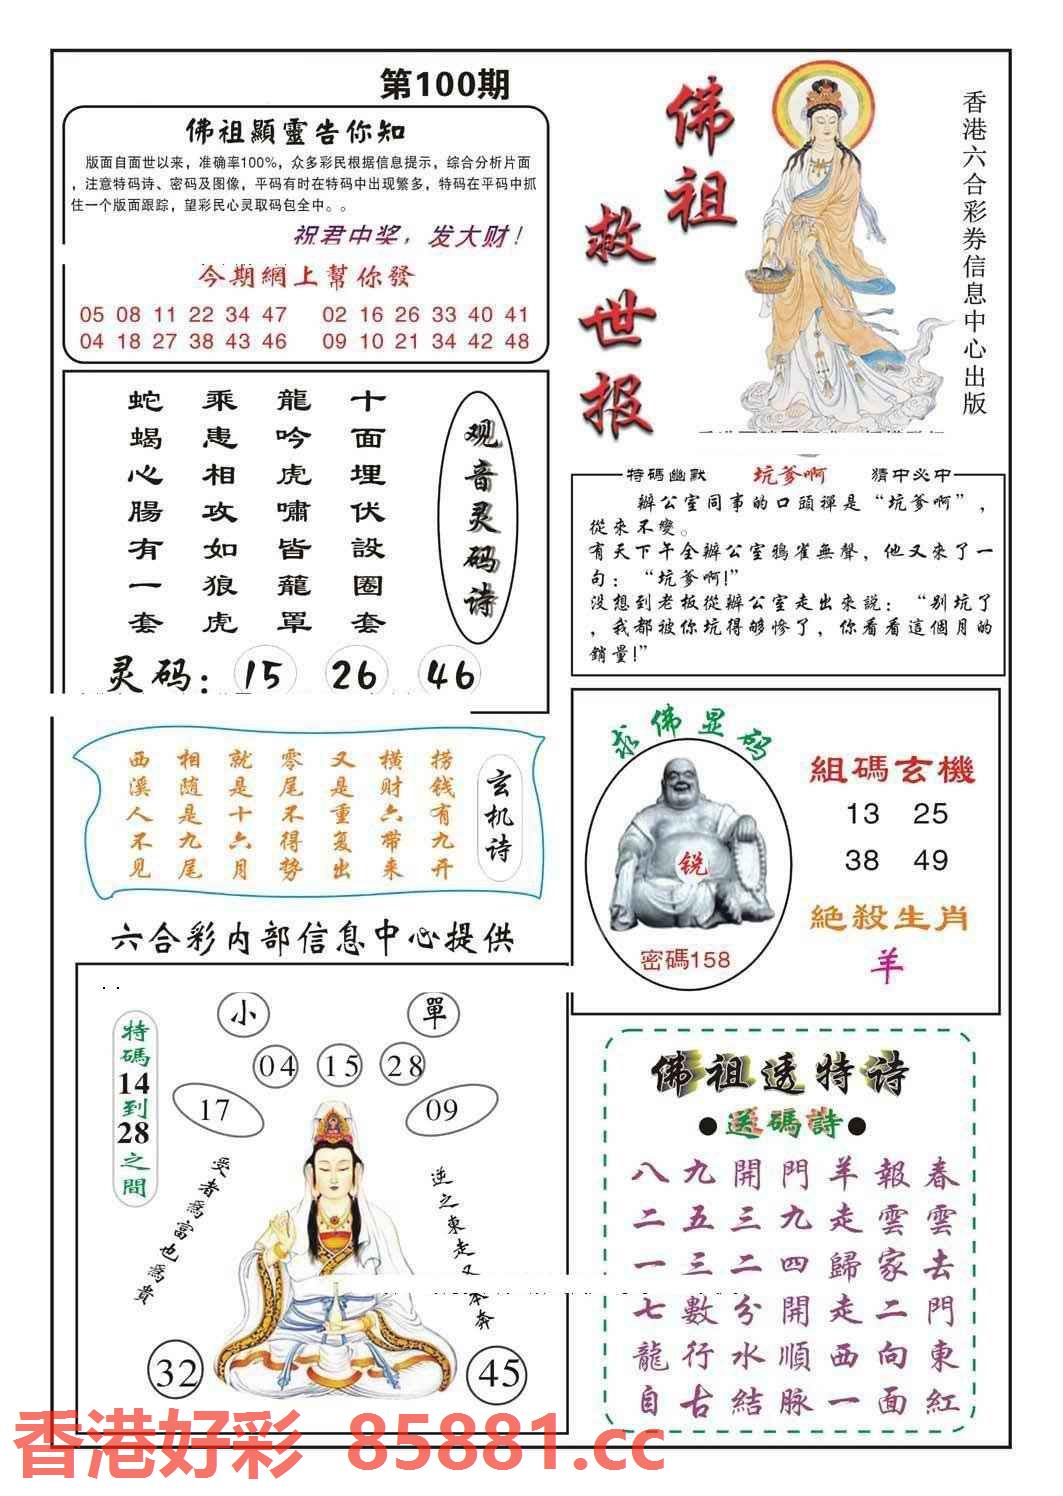 第100期
佛祖顯靈告你知
版面自面世以来，准确率100%，众多彩民根据信息提示，综合分析片面
，注意特码诗、密码及图像，平码有时在特码中出现繁多，特码在平码中抓
住一个版面跟踪，望彩民心灵取码包全中。。
祝君中奖，发大财！
今期網上幫你發
05 08 11 22 34 47 02 16 26 33 40 41
04 18 27 38 43 46 09 10 21 34 42 48
佛祖
救世报
香港六合彩券信息中心出版
观音灵码诗
十面埋伏設圈套
龍吟虎嘯皆籠罩
乘患相攻如狼虎
蛇蝎心腸有一套
灵码：15 26 46
特碼幽默 坑爹啊 猜中必中
辦公室同事的口頭禪是“坑爹啊”，
從來不變。
有天下午全辦公室鴉雀無聲，他又來了一
句：“坑爹啊!”
沒想到老板從辦公室走出來説：“别坑了
，我都被你坑得够惨了，你看看這個月的
銷量!”
玄机诗
捞钱有九开
横财六带来
又是重复出
零尾不得势
就是十六月
相随是九尾
西溪人不见
求佛显码
锐
密碼158
組碼玄機
13 25
38 49
絶殺生肖
羊
六合彩内部信息中心提供
特碼14到28之間
小 單
04 15 28
17 09
受者爲富也爲貴
逆之東走
奔
32 45
佛祖透特诗
●送碼詩●
八九開門羊報春
二五三九走雲雲
一三二四歸家去
七數分開走二門
龍行水順西向東
自古結脉一面紅
香港好彩 85881.cc